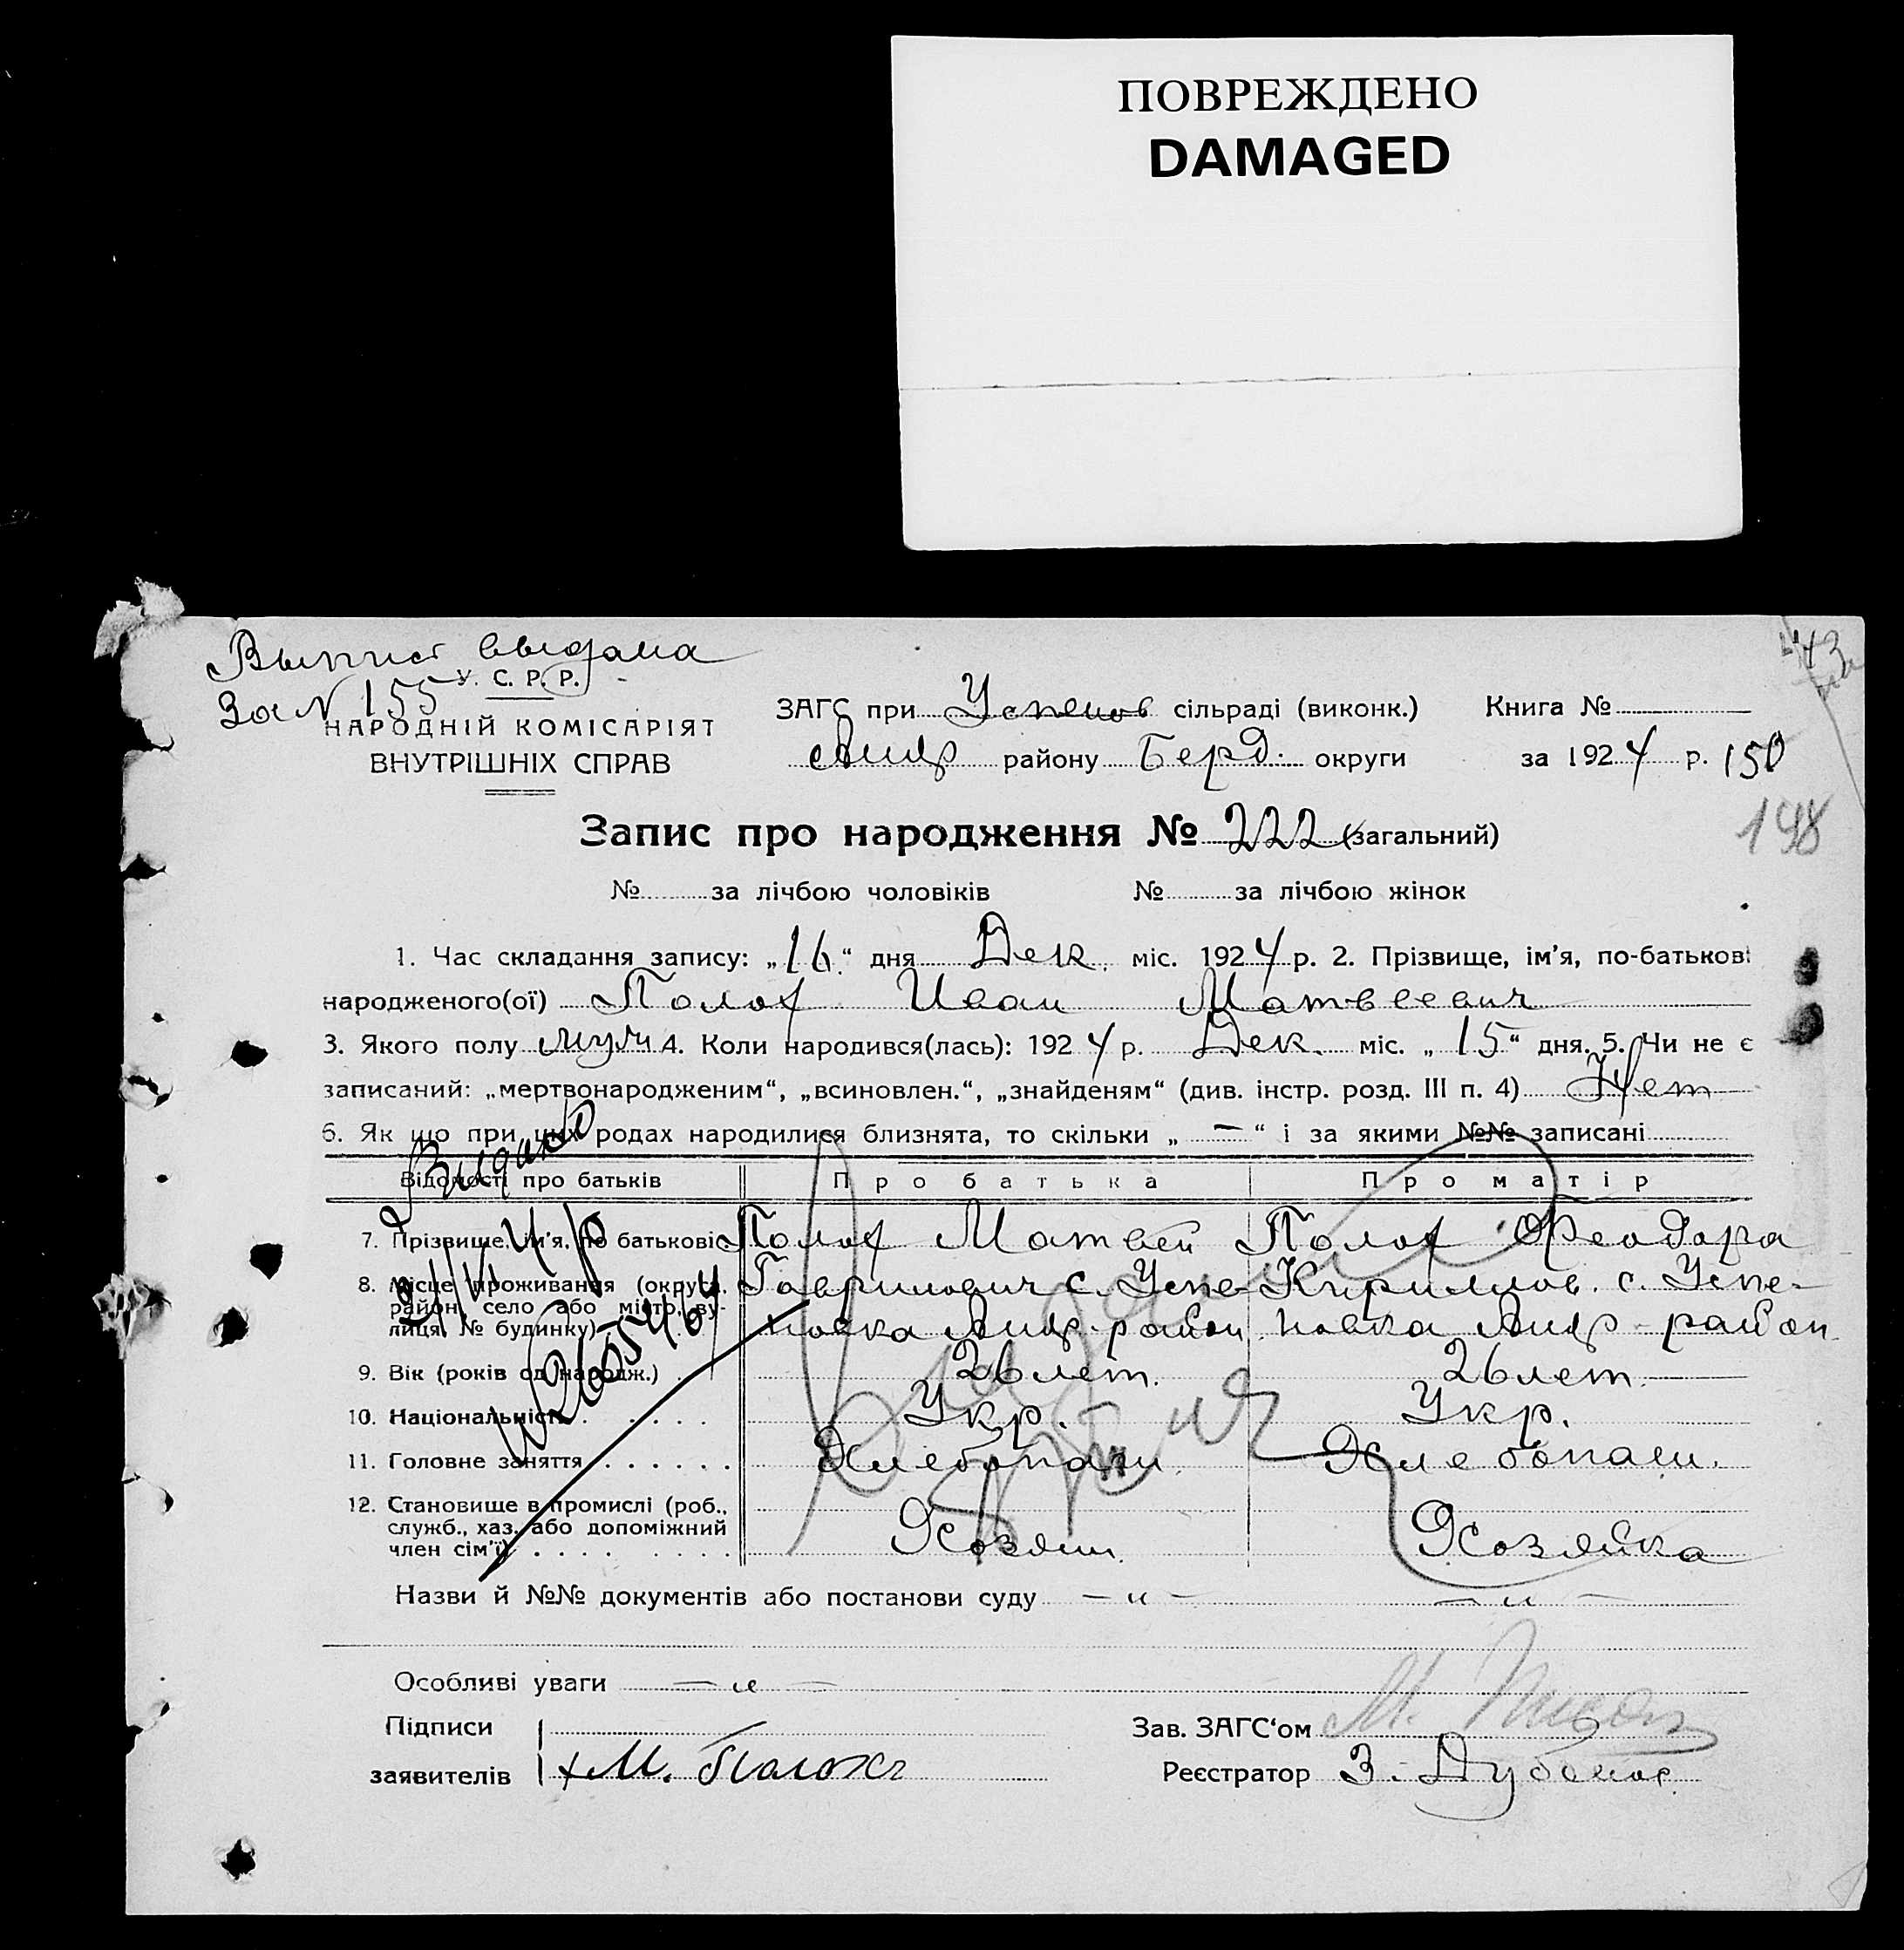 ПОВРЕЖДЕНО
DAMAGED
Выпись выдана
За № 155
У. С. Р. Р.
НАРОДНІЙ КОМІСАРІЯТ
ВНУТРІШНІХ СПРАВ
ЗАГС при Успенов сільраді (виконк.) Книга №
району Берд. округи за 1924 р. 150
198
Запис про народження № 222 (загальний)
№ за лічбою чоловіків № за лічбою жінок
1. Час складання запису: „16.“ дня Дек. міс. 1924 р. 2. Прізвище, ім'я, по-батькові
народженого(ої) Полох Иван Матвеевич
3. Якого полу муж 4. Коли народився(лась): 1924 р. Дек. міс. „15“ дня. 5. Чи не є
записаний: „мертвонародженим“, „всиновлен.“, „знайденям“ (див. інстр. розд. III п. 4) Нет
6. Як що при цих родах народилися близнята, то скільки „ — “ і за якими №№ записані
Відомості про батьків Про батька Про матір
7. Прізвище, ім'я, по батькові Полох Матвей Полох Феодора
8. Місце проживання (округа, район, село або місто, вулиця, № будинку) Гаврилович с. Успе- Кирилов. с. Успе-
новка Андр. район новка Андр - район
9. Вік (років од народж.) 26 лет. 26 лет.
10. Національність Укр. Укр.
11. Головне заняття Хлебопаш. Хлебопаш.
12. Становище в промислі (роб., служб., хаз. або допоміжний член сім'ї) Хозяин Хозяйка
Назви й №№ документів або постанови суду — „ — — „ —
Особливі уваги — „ —
Підписи
заявителів +М. Полох
Зав. ЗАГС‘ом М.
Реєстратор З. Дубенос